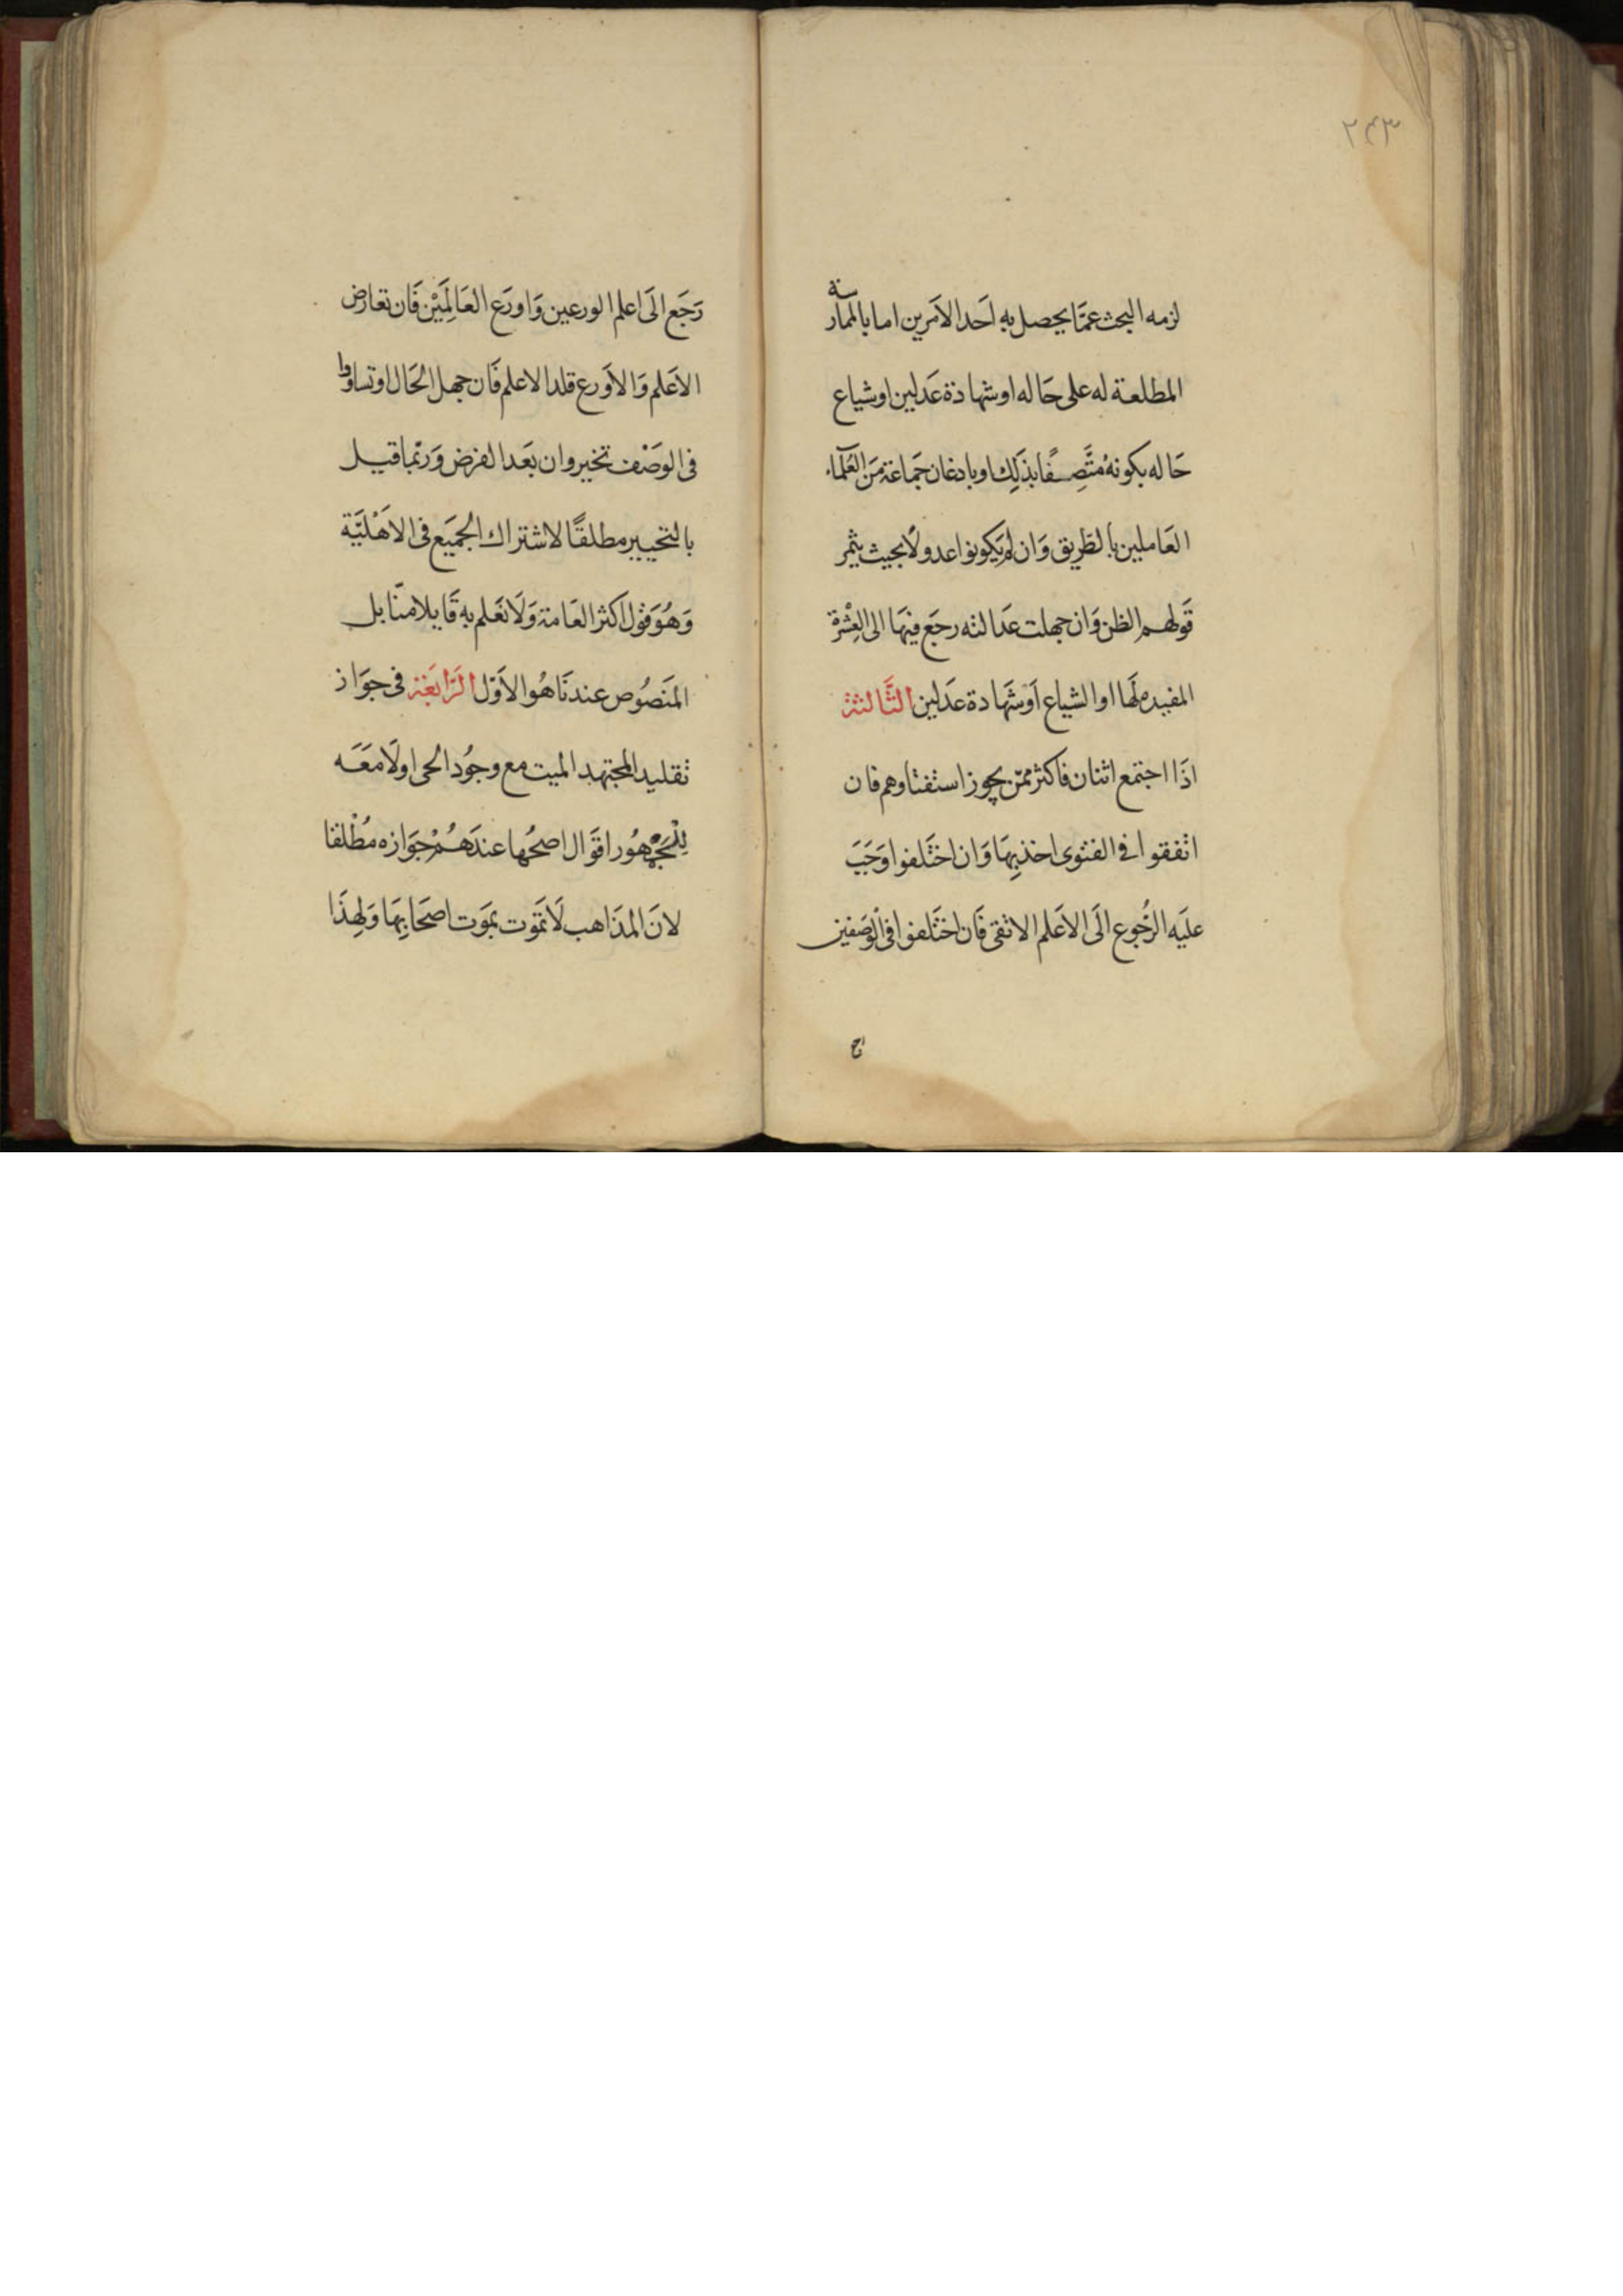 ٢٤٣
لزمه البحث عمَّا يحصل به اَحَد الاَمرين اما بالممارسة
المطلعة له على حَاله او شهادة عَدلين او شياع
حَاله بكونهُ مُتَّصِفًا بذَلِك او باذعان جَماعة مَن العُلَماء
العَاملين بالطَريق وَان لم يَكونوا عدولاً بحيث يثمر
قَولهم الظن وَان جهلت عَدالته رجَع فيهَا الى العِشْرة
المفيده لَها او الشياع اَو شَهَادة عَدلين الثَّالثة
اذَا اجتمع اثنان فاكثر ممّن يجوز استفتاوهم فان
اتفقوا في الفتوى اخذ بِهَا وَان اختَلفوا وَجَبَ
عليَه الرُّجُوع الَى الاَعلم الاتقى فَان اختَلفوا فى الوَصفين
رَجَع الَى اعلم الورعين وَاورَع العَالِمَيْن فَان تعارض
الاَعَلم وَالاَورع قلد الاعلم فَان جهل الحَال او تساووا
فى الوصَف تخير وان بَعَد الفرض وَربّما قيل
بالتخيير مطلقًا لاشتراك الجَميَع فى الاَهْليَّة
وَهُوَ قوُل اكثر العَامة وَلَا نَعَلم به قَايلا منّا بل
المنَصُوص عندنَا هُو الاَوّل الرَابعَة فى جوَاز
تقليد المجتهد الميت مع وجُود الحى اولَا مَعَه
لِلْجَمْهُور اقوَال اصحُها عندَهُمْ جَوَازه مُطْلقا
لانَ المذَاهب لَا تَموت بمَوت اصحَابِهَا وَلِهذَا